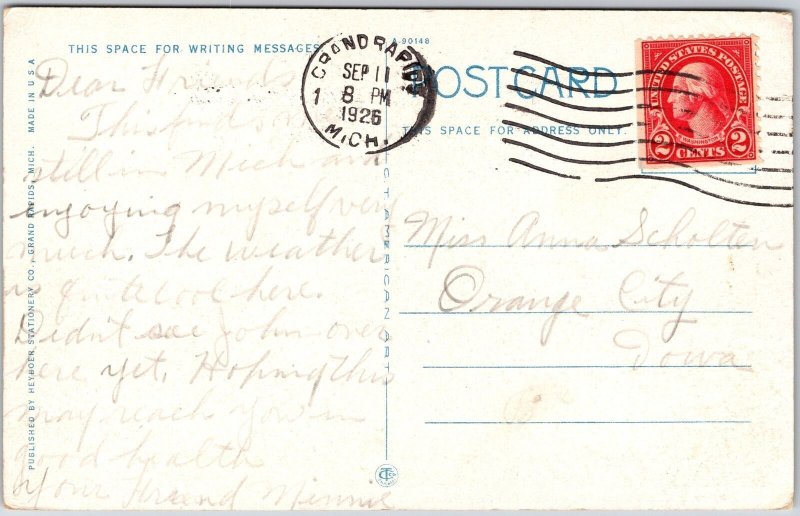 THIS SPACE FOR WRITING MESSAGES
A-90148
POST CARD
THIS SPACE FOR ADDRESS ONLY.
GRAND RAPIDS
SEP 11
8 PM
1
1926
MICH.
UNITED STATES POSTAGE
WASHINGTON
2 CENTS 2
Dear Friends
This finds me
still in Mich and
enjoying myself very
much. The weather
is quite cool here.
Didn't see John over
here yet. Hoping this
may reach you in
good health
Your Friend Minnie
Miss Anna Scholten
Orange City
Iowa
PUBLISHED BY HEYBOER STATIONERY CO., GRAND RAPIDS, MICH. MADE IN U.S.A
C.T. AMERICAN ART